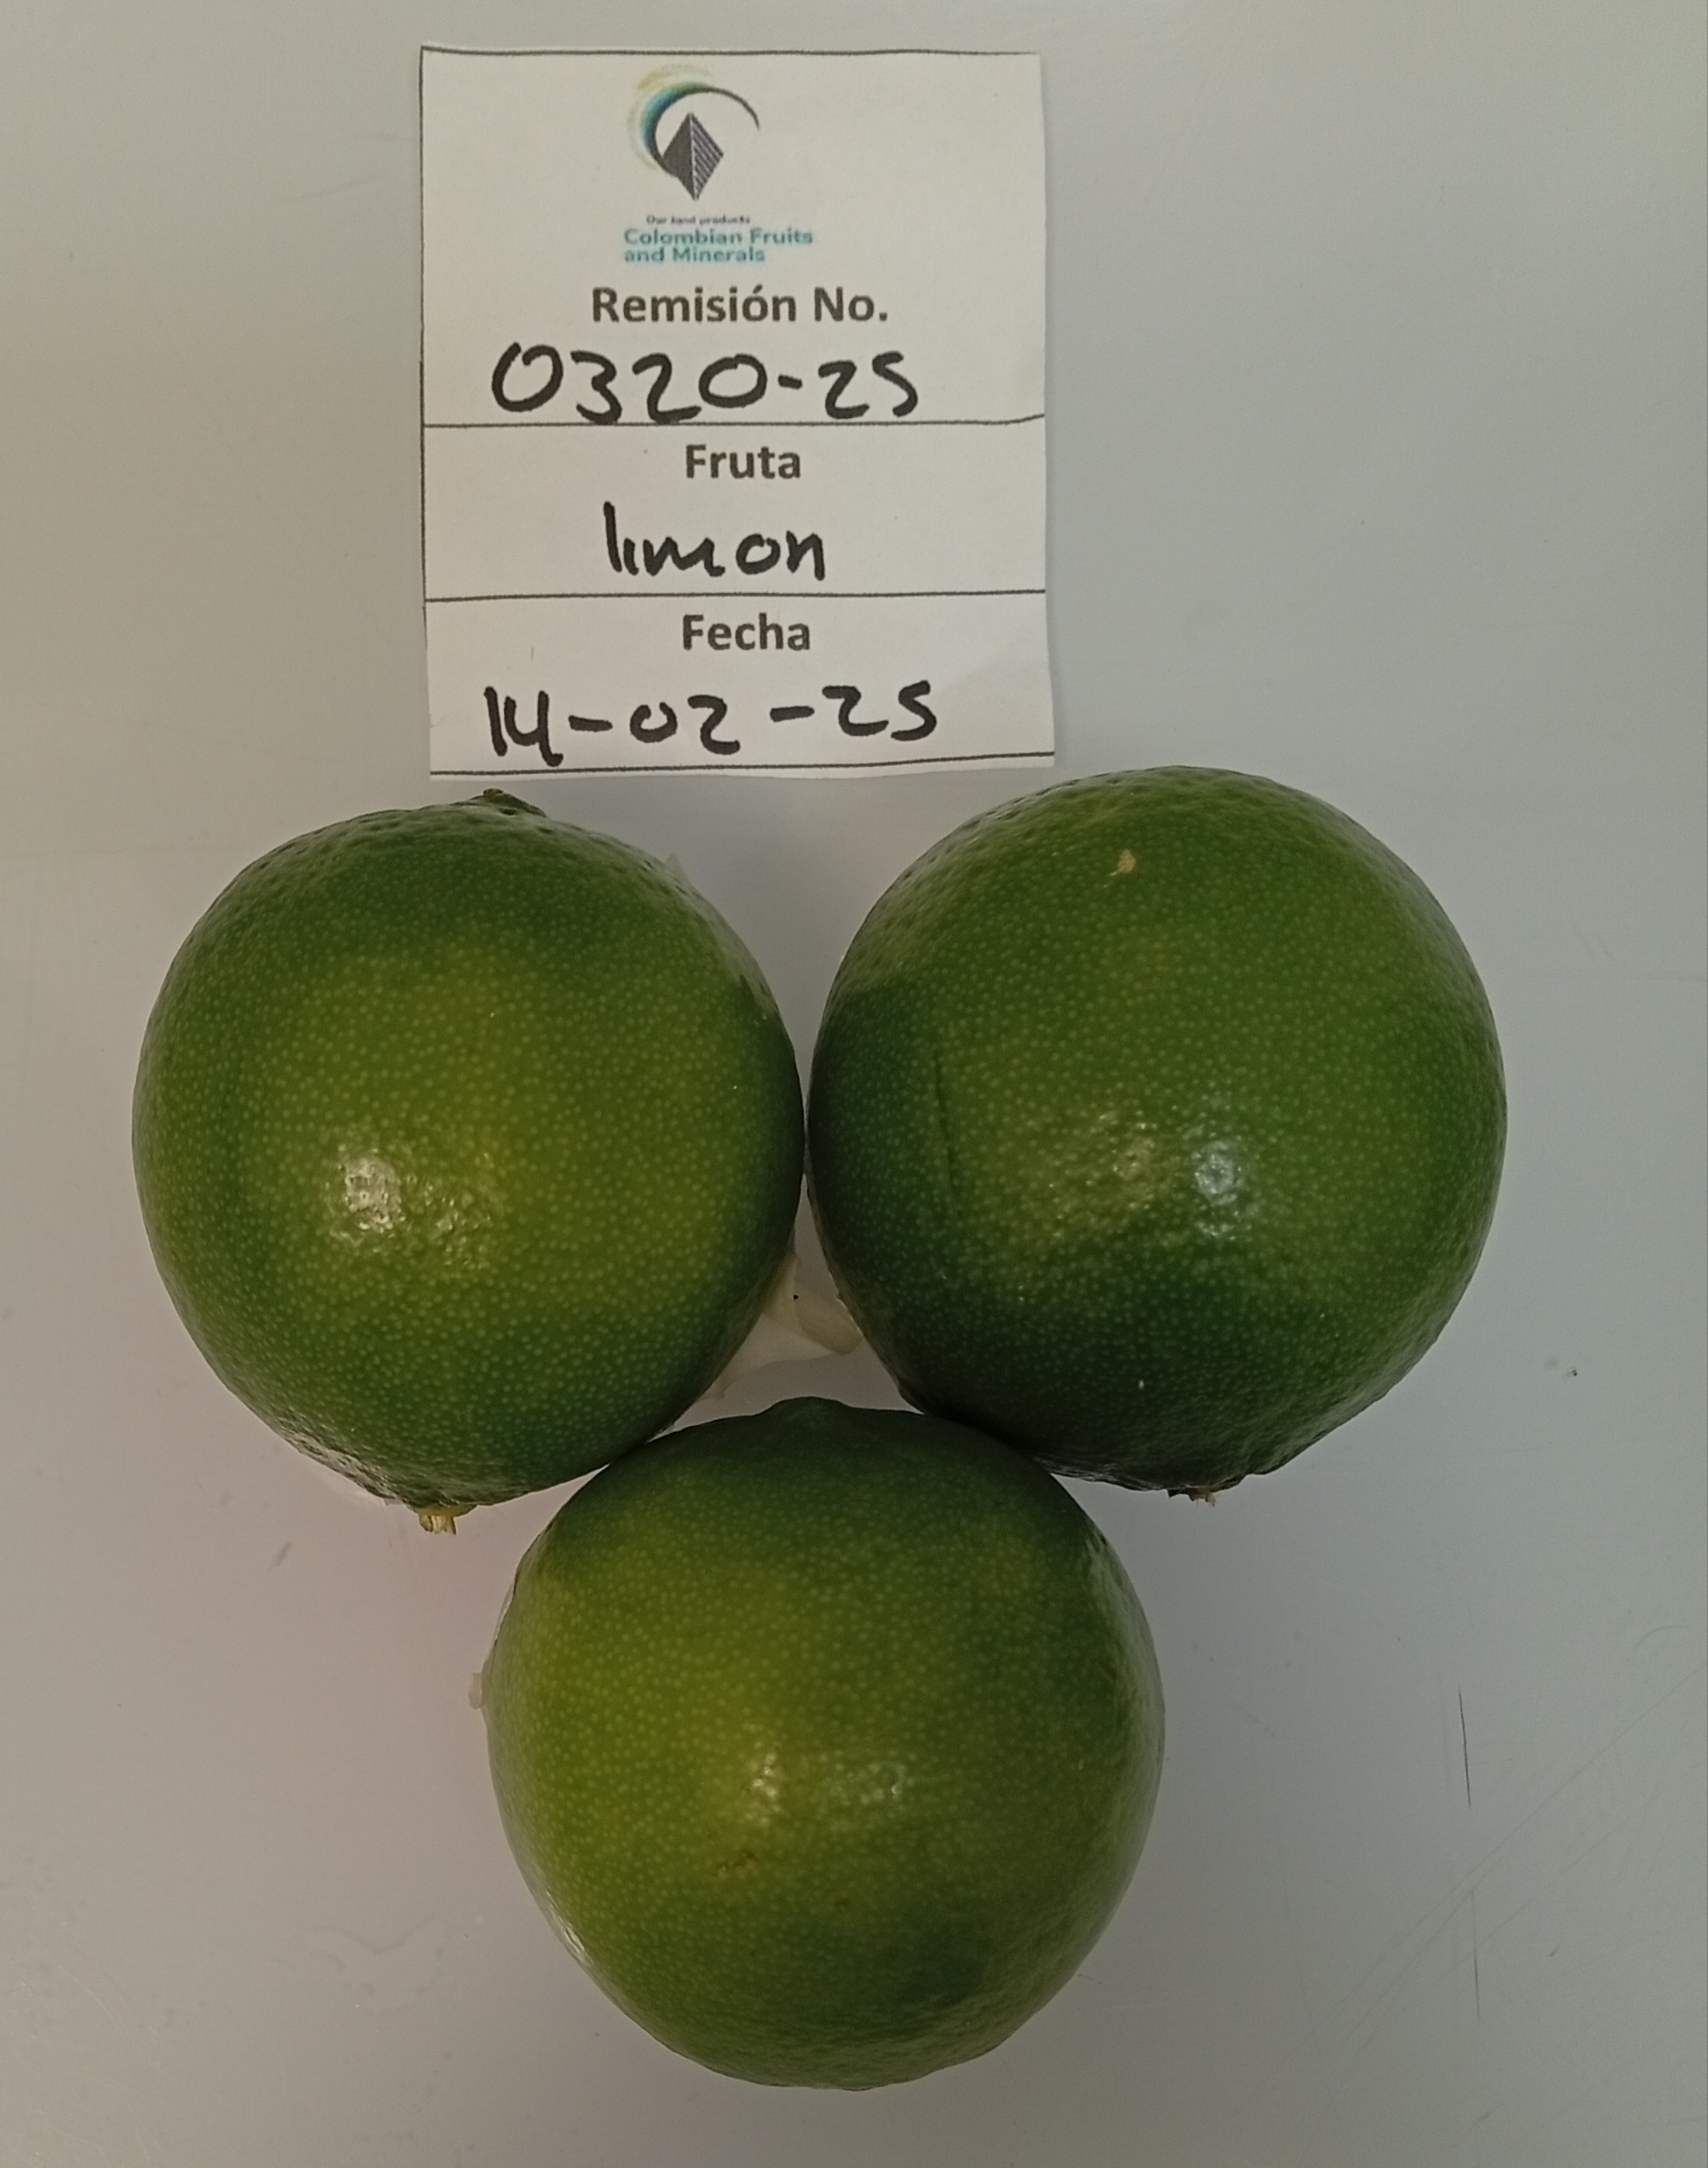 Our land products
Colombian Fruits
and Minerals
Remisión No.
0320-25
Fruta
limon
Fecha
14-02-25